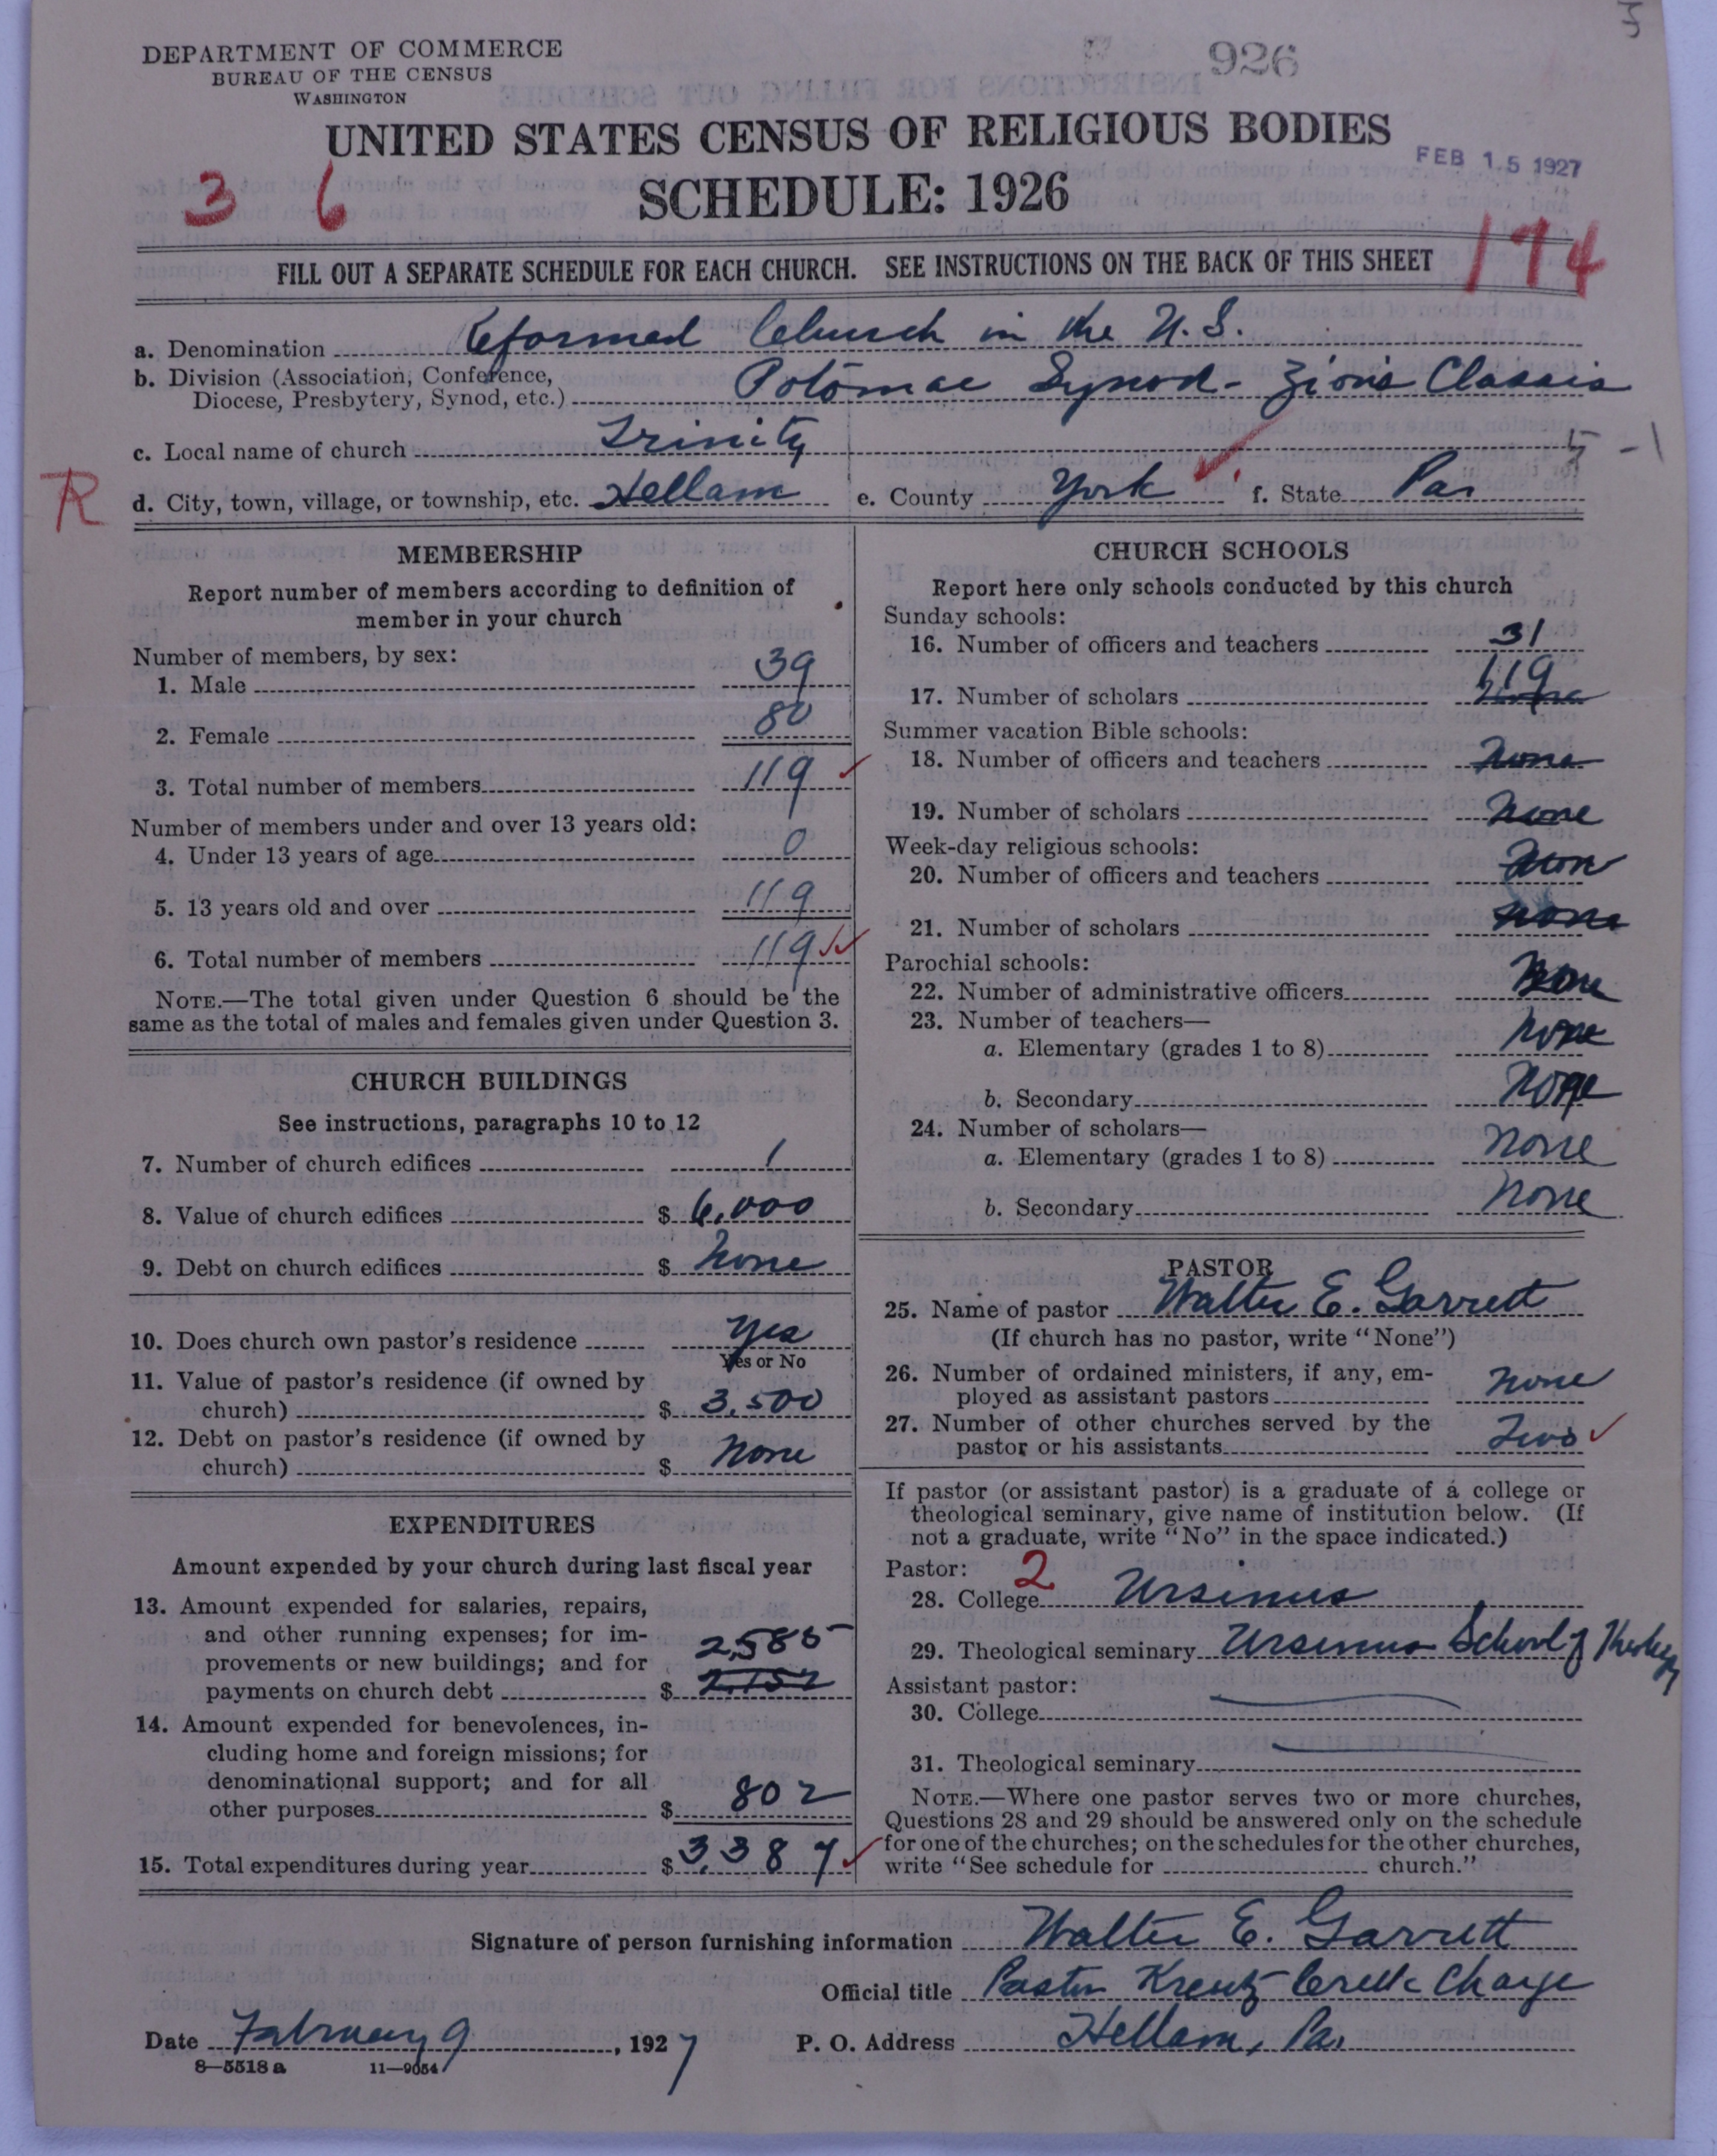 DEPARTMENT OF COMMERCE
BUREAU OF THE CENSUS
WASHINGTON
926
UNITED STATES CENSUS OF RELIGIOUS BODIES
FEB 15 1927
3 6
SCHEDULE: 1926
FILL OUT A SEPARATE SCHEDULE FOR EACH CHURCH. SEE INSTRUCTIONS ON THE BACK OF THIS SHEET
174
a. Denomination Reformed Church in the U.S.
b. Division (Association, Conference,
Diocese, Presbytery, Synod, etc.) Potomac Synod - Zion's Classis
c. Local name of church Trinity
5 -1
R
d. City, town, village, or township, etc. Hellam e. County York f. State Pa.
MEMBERSHIP
Report number of members according to definition of
member in your church
Number of members, by sex:
1. Male 39
2. Female 80
3. Total number of members 119
Number of members under and over 13 years old:
4. Under 13 years of age 0
5. 13 years old and over 119
6. Total number of members 119
NOTE.—The total given under Question 6 should be the
same as the total of males and females given under Question 3.
CHURCH BUILDINGS
See instructions, paragraphs 10 to 12
7. Number of church edifices 1
8. Value of church edifices $ 6,000
9. Debt on church edifices $ None
10. Does church own pastor's residence Yes
Yes or No
11. Value of pastor's residence (if owned by
church) $ 3,500
12. Debt on pastor's residence (if owned by
church) $ None
EXPENDITURES
Amount expended by your church during last fiscal year
13. Amount expended for salaries, repairs,
and other running expenses; for im-
provements or new buildings; and for
payments on church debt $ 2,585
2,152
14. Amount expended for benevolences, in-
cluding home and foreign missions; for
denominational support; and for all
other purposes $ 802
15. Total expenditures during year $ 3,387
CHURCH SCHOOLS
Report here only schools conducted by this church
Sunday schools:
16. Number of officers and teachers 31
17. Number of scholars 119
Summer vacation Bible schools:
18. Number of officers and teachers None
19. Number of scholars None
Week-day religious schools:
20. Number of officers and teachers None
21. Number of scholars None
Parochial schools:
22. Number of administrative officers None
23. Number of teachers—
a. Elementary (grades 1 to 8) None
b. Secondary None
24. Number of scholars—
a. Elementary (grades 1 to 8) None
b. Secondary None
PASTOR
25. Name of pastor Walter E. Garrett
(If church has no pastor, write "None")
26. Number of ordained ministers, if any, em-
ployed as assistant pastors None
27. Number of other churches served by the
pastor or his assistants Two
If pastor (or assistant pastor) is a graduate of a college or
theological seminary, give name of institution below. (If
not a graduate, write "No" in the space indicated.)
Pastor: 2
28. College Ursinus
29. Theological seminary Ursinus School of Theology
Assistant pastor:
30. College
31. Theological seminary
NOTE.—Where one pastor serves two or more churches,
Questions 28 and 29 should be answered only on the schedule
for one of the churches; on the schedules for the other churches,
write "See schedule for church."
Signature of person furnishing information Walter E. Garrett
Official title Pastor Kreutz Creek Charge
Date February 9, 1927 P. O. Address Hellam, Pa.
8—5518 a 11—9054